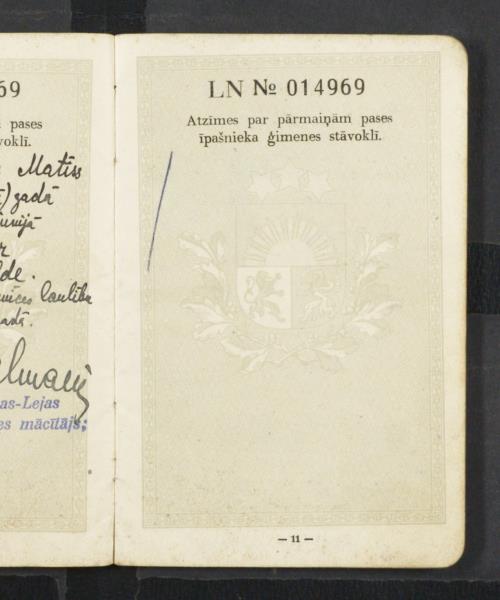 69
pases
vokli.
Matīss
gadā
laulība
as-Lejas
es mācītājs;
LN № 014969
Atzīmes par pārmaiņām pases
īpašnieka ģimenes stāvoklī.
— 11 —